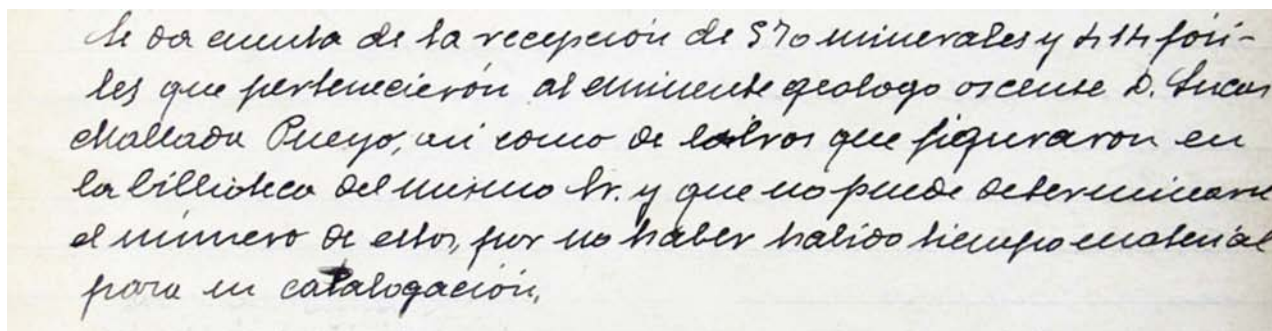 Se da cuenta de la recepción de 570 minerales y 414 fósi-
les que pertenecierón al eminente geologo oscense D. Lucas
Mallada Pueyo, asi como de libros que figuraron en
la billioteca del mismo Sr. y que no puede determinarse
el número de estos, por no haber habido tiempo material
para su catalogación.